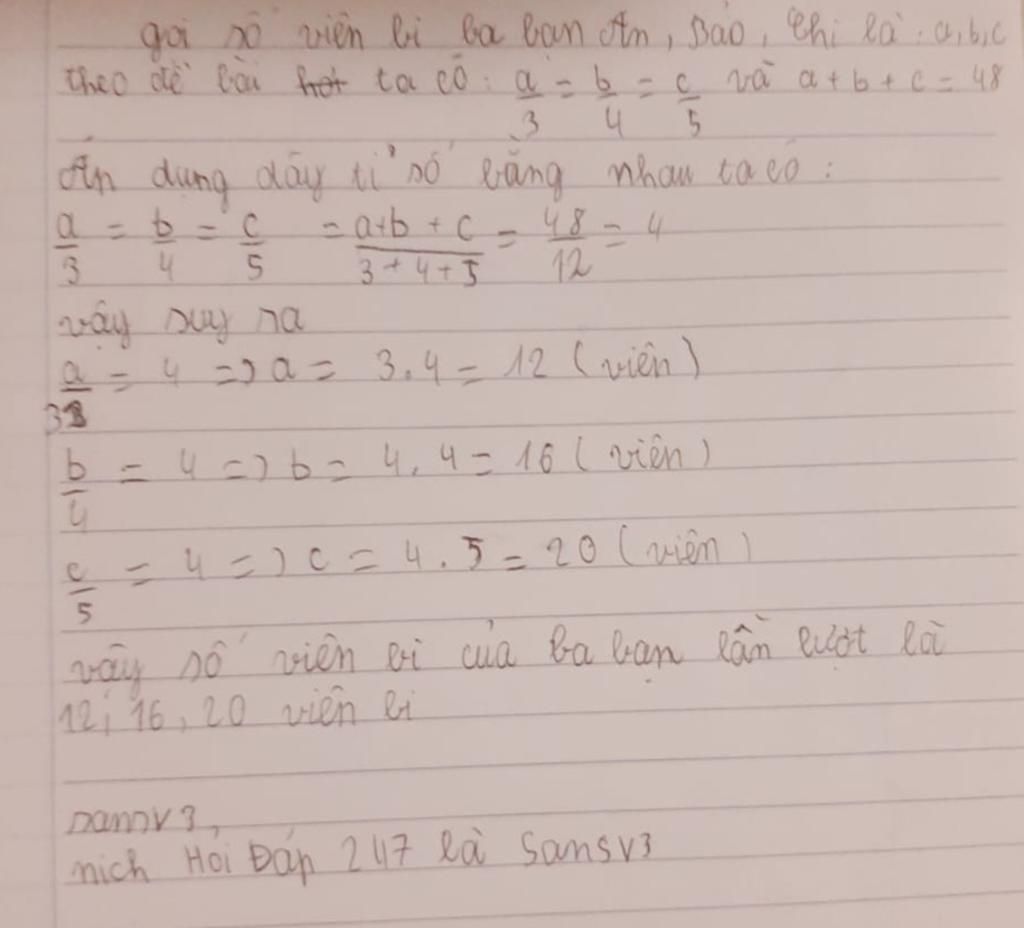 gọi số viên bi ba bạn An, Bảo, Chi là : a, b, c
theo đề bài ta có : a/3 = b/4 = c/5 và a + b + c = 48
Áp dụng dãy tỉ số bằng nhau ta có :
a/3 = b/4 = c/5 = a+b+c/3+4+5 = 48/12 = 4
vậy suy ra
a/3 = 4 => a = 3.4 = 12 (viên)
b/4 = 4 => b = 4.4 = 16 (viên)
c/5 = 4 => c = 4.5 = 20 (viên)
vậy số viên bi của ba bạn lần lượt là
12; 16, 20 viên bi
sansv3,
nich Hỏi Đáp 247 là Sansv3